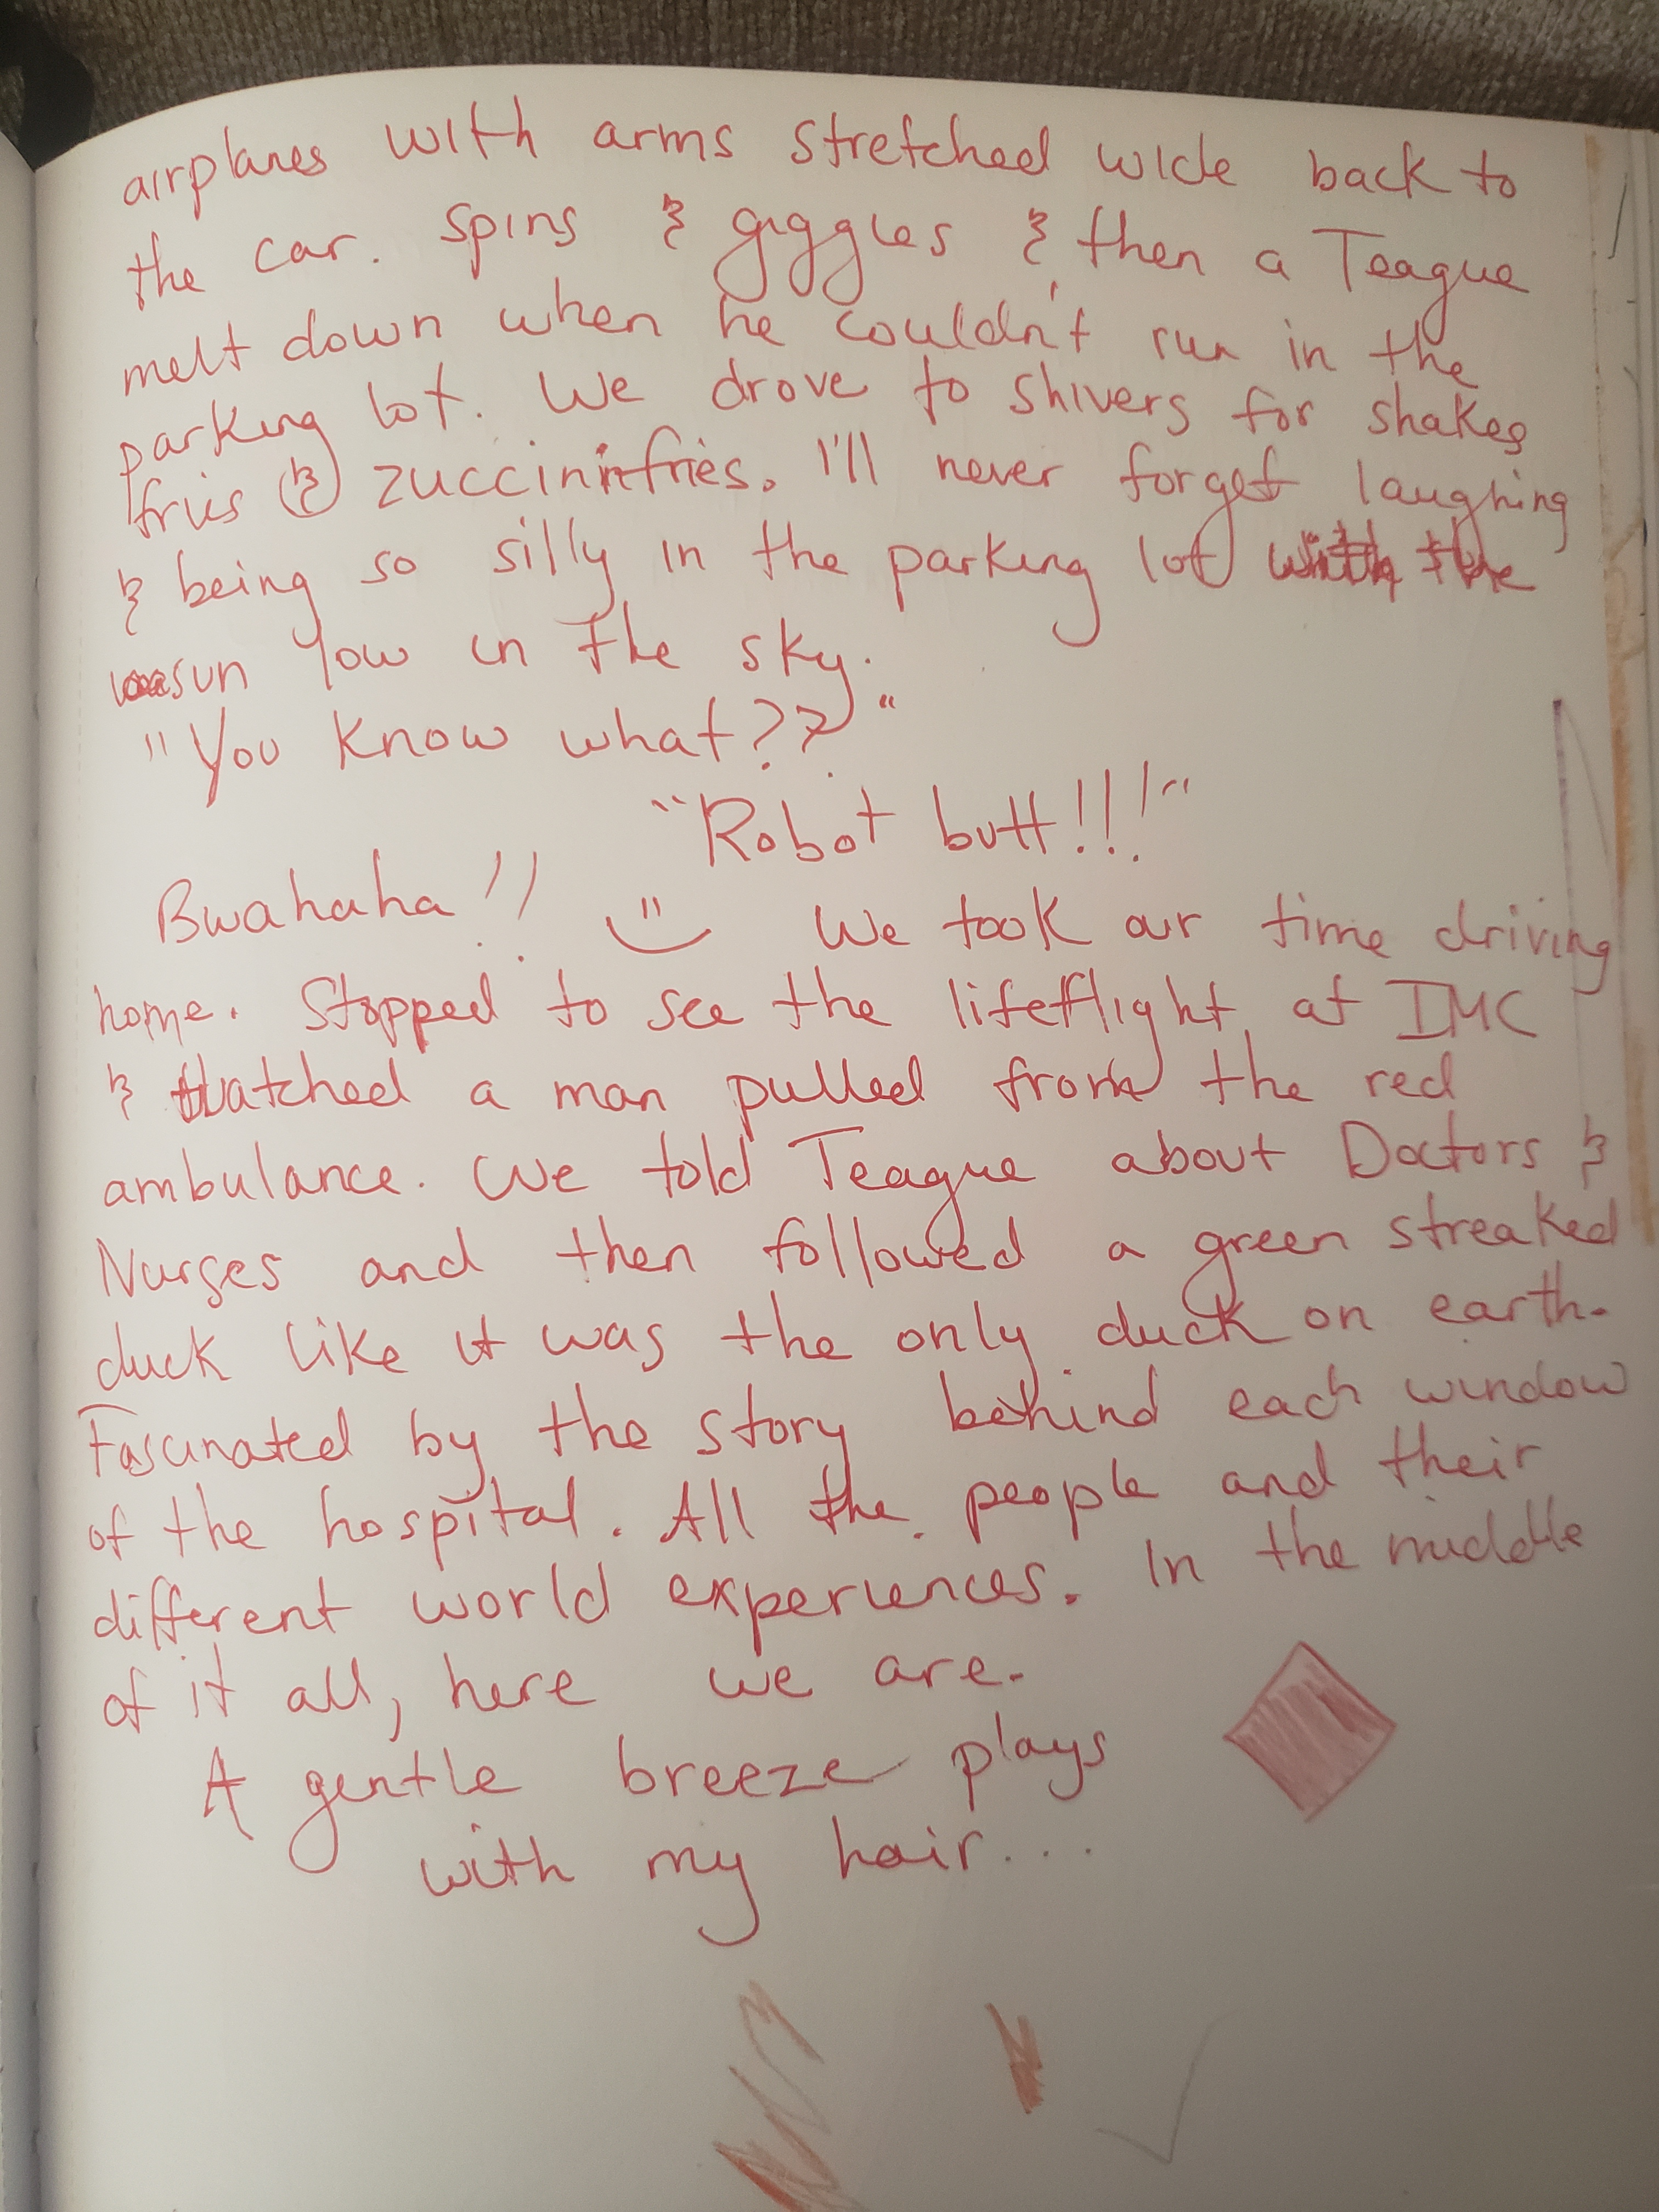 airplanes with arms stretched wide back to
the car. Spins & giggles & then a Teague
melt down when he couldn't run in the
parking lot. We drove to Shivers for shakes
fries & zuccini fries. I'll never forget laughing
& being so silly in the parking lot with the
sun low in the sky.
"You know what??"
"Robot butt!!!"
Bwahaha!! We took our time driving
home. Stopped to see the lifeflight at IMC
& watched a man pulled from the red
ambulance. We told Teague about Doctors &
Nurses and then followed a green streaked
duck like it was the only duck on earth.
Fascinated by the story behind each window
of the hospital. All the people and their
different world experiences. In the middle
of it all, here we are.
A gentle breeze plays
with my hair...